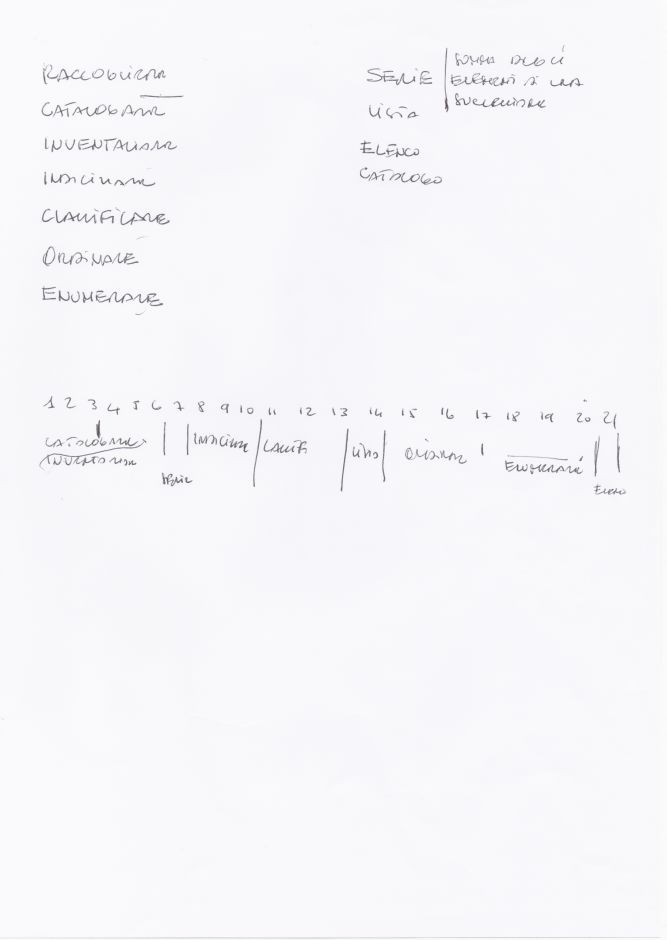 RACCOGLIERE
CATALOGARE
INVENTARIARE
INDICIZZARE
CLASSIFICARE
ORDINARE
ENUMERARE
SERIE
SOMMA DEGLI
ELEMENTI DI UNA
SUCCESSIONE
LISTA
ELENCO
CATALOGO
1 2 3 4 5 6 7 8 9 10 11 12 13 14 15 16 17 18 19 20 21
CATALOGARE INDICIZZARE CLASSIFI LISTA ORDINARE ENUMERARE
INVENTARIARE
SERIE ELENCO